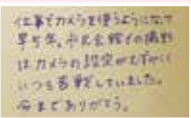 仕事でカメラを使うようになって
早5年。市民会館での撮影
はカメラの設定がむずかしく
いつも苦戦していました。
今までありがとう。